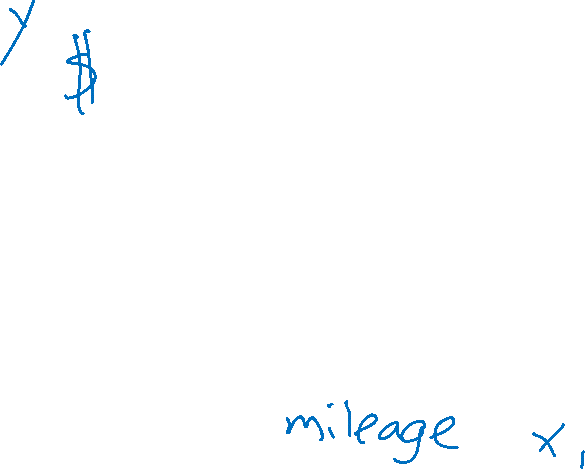 y
$
mileage x₁